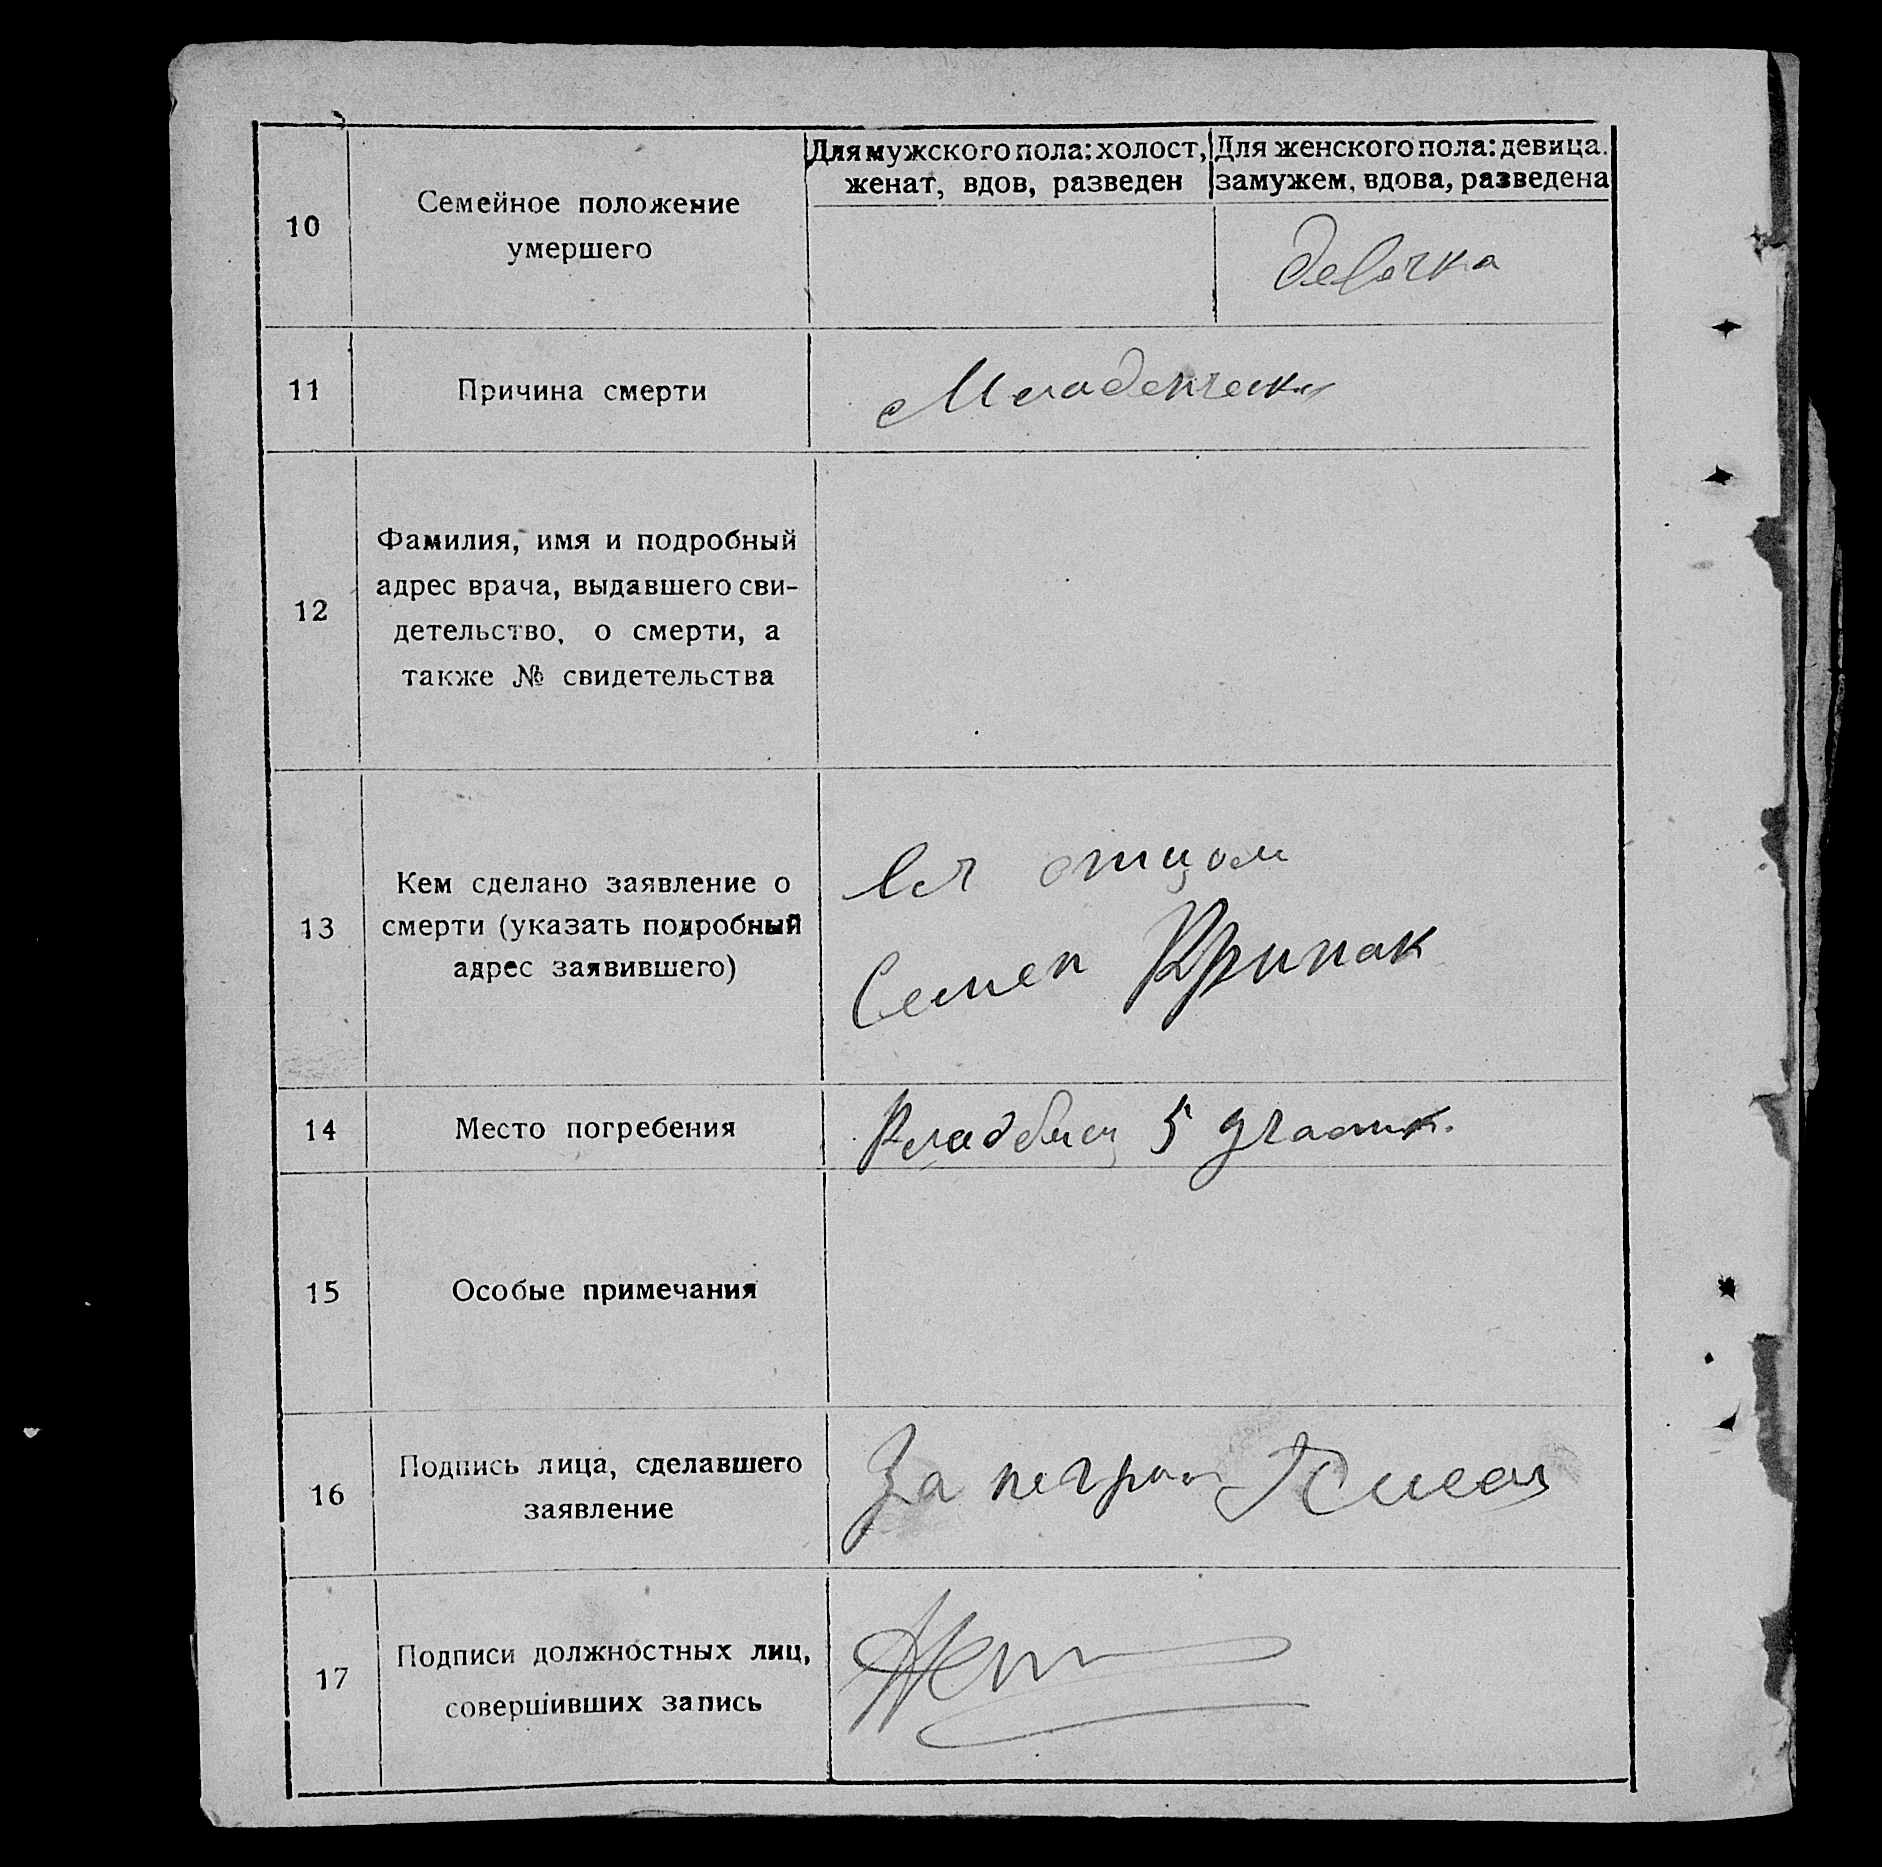 10
Семейное положение
умершего
Для мужского пола: холост,
женат, вдов, разведен
Для женского пола: девица.
замужем, вдова, разведена
девочка
11
Причина смерти
Младенческ
12
Фамилия, имя и подробный
адрес врача, выдавшего сви-
детельство, о смерти, а
также № свидетельства
13
Кем сделано заявление о
смерти (указать подробный
адрес заявившего)
отцом
Семен Крипак
14
Место погребения
Кладбищ 5 участк.
15
Особые примечания
16
Подпись лица, сделавшего
заявление
За неграм
17
Подписи должностных лиц,
совершивших запись